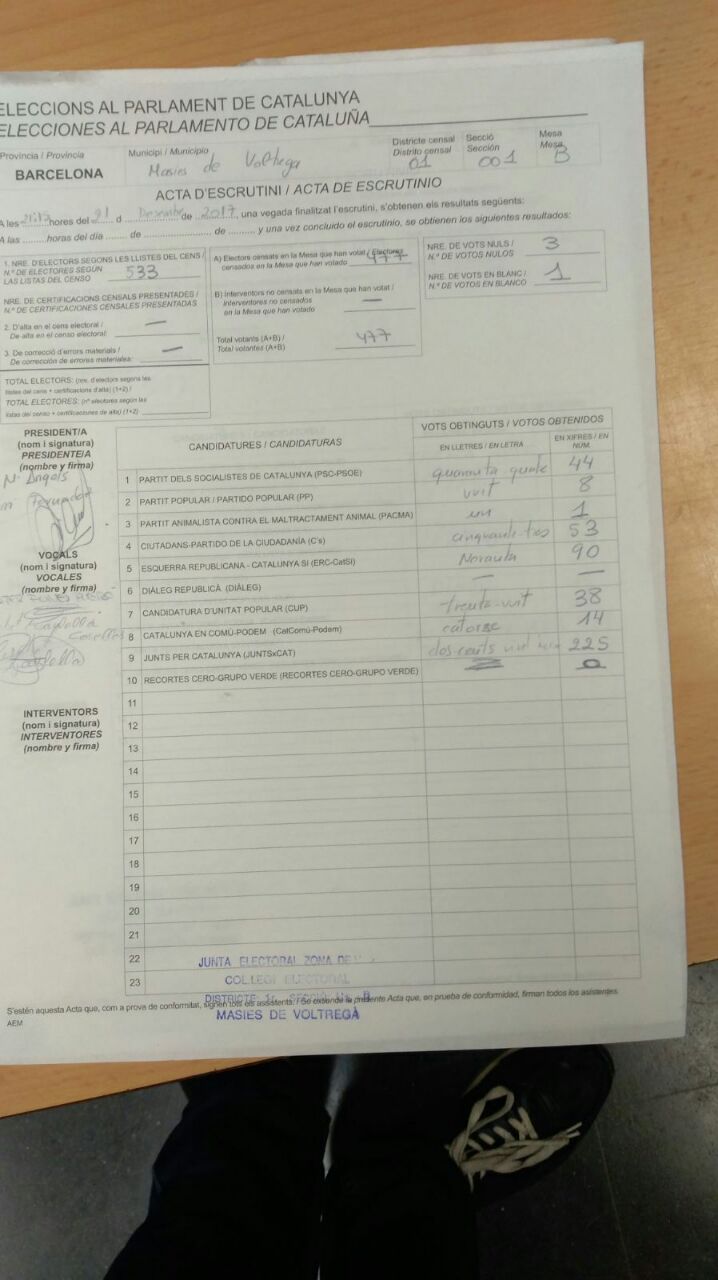 ELECCIONS AL PARLAMENT DE CATALUNYA
ELECCIONES AL PARLAMENTO DE CATALUÑA
Provincia / Provincia
BARCELONA
Municipi / Municipio
Masies de Voltrega
Districte censal
Distrito censal
01
Secció
Sección
001
Mesa
Mesa
B
ACTA D'ESCRUTINI / ACTA DE ESCRUTINIO
A les hores del 21 d Desembre de 2017, una vegada finalitzat l'escrutini, s'obtenen els resultats següents:
A las ......... horas del día ....... de .................... de .......... y una vez concluido el escrutinio, se obtienen los siguientes resultados:
1. NRE. D'ELECTORS SEGONS LES LLISTES DEL CENS /
N.º DE ELECTORES SEGÚN
LAS LISTAS DEL CENSO 533
NRE. DE CERTIFICACIONS CENSALS PRESENTADES /
N.º DE CERTIFICACIONES CENSALES PRESENTADAS
2. D'alta en el cens electoral / —
De alta en el censo electoral:
3. De correcció d'errors materials / —
De corrección de errores materiales:
TOTAL ELECTORS: (nre. d'electors segons les
llistes del cens + certificacions d'alta) (1+2) /
TOTAL ELECTORES: (nº electores según las
listas del censo + certificaciones de alta) (1+2)
A) Electors censats en la Mesa que han votat / Electores
censados en la Mesa que han votado 477
B) Interventors no censats en la Mesa que han votat /
Interventores no censados
en la Mesa que han votado —
Total votants (A+B) /
Total votantes (A+B) 477
NRE. DE VOTS NULS /
N.º DE VOTOS NULOS 3
NRE. DE VOTS EN BLANC /
N.º DE VOTOS EN BLANCO 1
PRESIDENT/A
(nom i signatura)
PRESIDENTE/A
(nombre y firma)
VOCALS
(nom i signatura)
VOCALES
(nombre y firma)
INTERVENTORS
(nom i signatura)
INTERVENTORES
(nombre y firma)
CANDIDATURES / CANDIDATURAS
VOTS OBTINGUTS / VOTOS OBTENIDOS
EN LLETRES / EN LETRA
EN XIFRES / EN NÚM.
1 PARTIT DELS SOCIALISTES DE CATALUNYA (PSC-PSOE) 44
2 PARTIT POPULAR / PARTIDO POPULAR (PP) vuit 8
3 PARTIT ANIMALISTA CONTRA EL MALTRACTAMENT ANIMAL (PACMA) un 1
4 CIUTADANS-PARTIDO DE LA CIUDADANÍA (C's) cinquanta-tres 53
5 ESQUERRA REPUBLICANA - CATALUNYA SÍ (ERC-CatSí) Noranta 90
6 DIÀLEG REPUBLICÀ (DIÀLEG) — —
7 CANDIDATURA D'UNITAT POPULAR (CUP) trenta-vuit 38
8 CATALUNYA EN COMÚ-PODEM (CatComú-Podem) catorze 14
9 JUNTS PER CATALUNYA (JUNTSxCAT) dos-cents 225
10 RECORTES CERO-GRUPO VERDE (RECORTES CERO-GRUPO VERDE) 0
11
12
13
14
15
16
17
18
19
20
21
22
23
JUNTA ELECTORAL ZONA DE
COL.LEGI ELECTORAL
MASIES DE VOLTREGÀ
S'estén aquesta Acta que, com a prova de conformitat, signen tots els assistents. / Se extiende la presente Acta que, en prueba de conformidad, firman todos los asistentes.
AEM